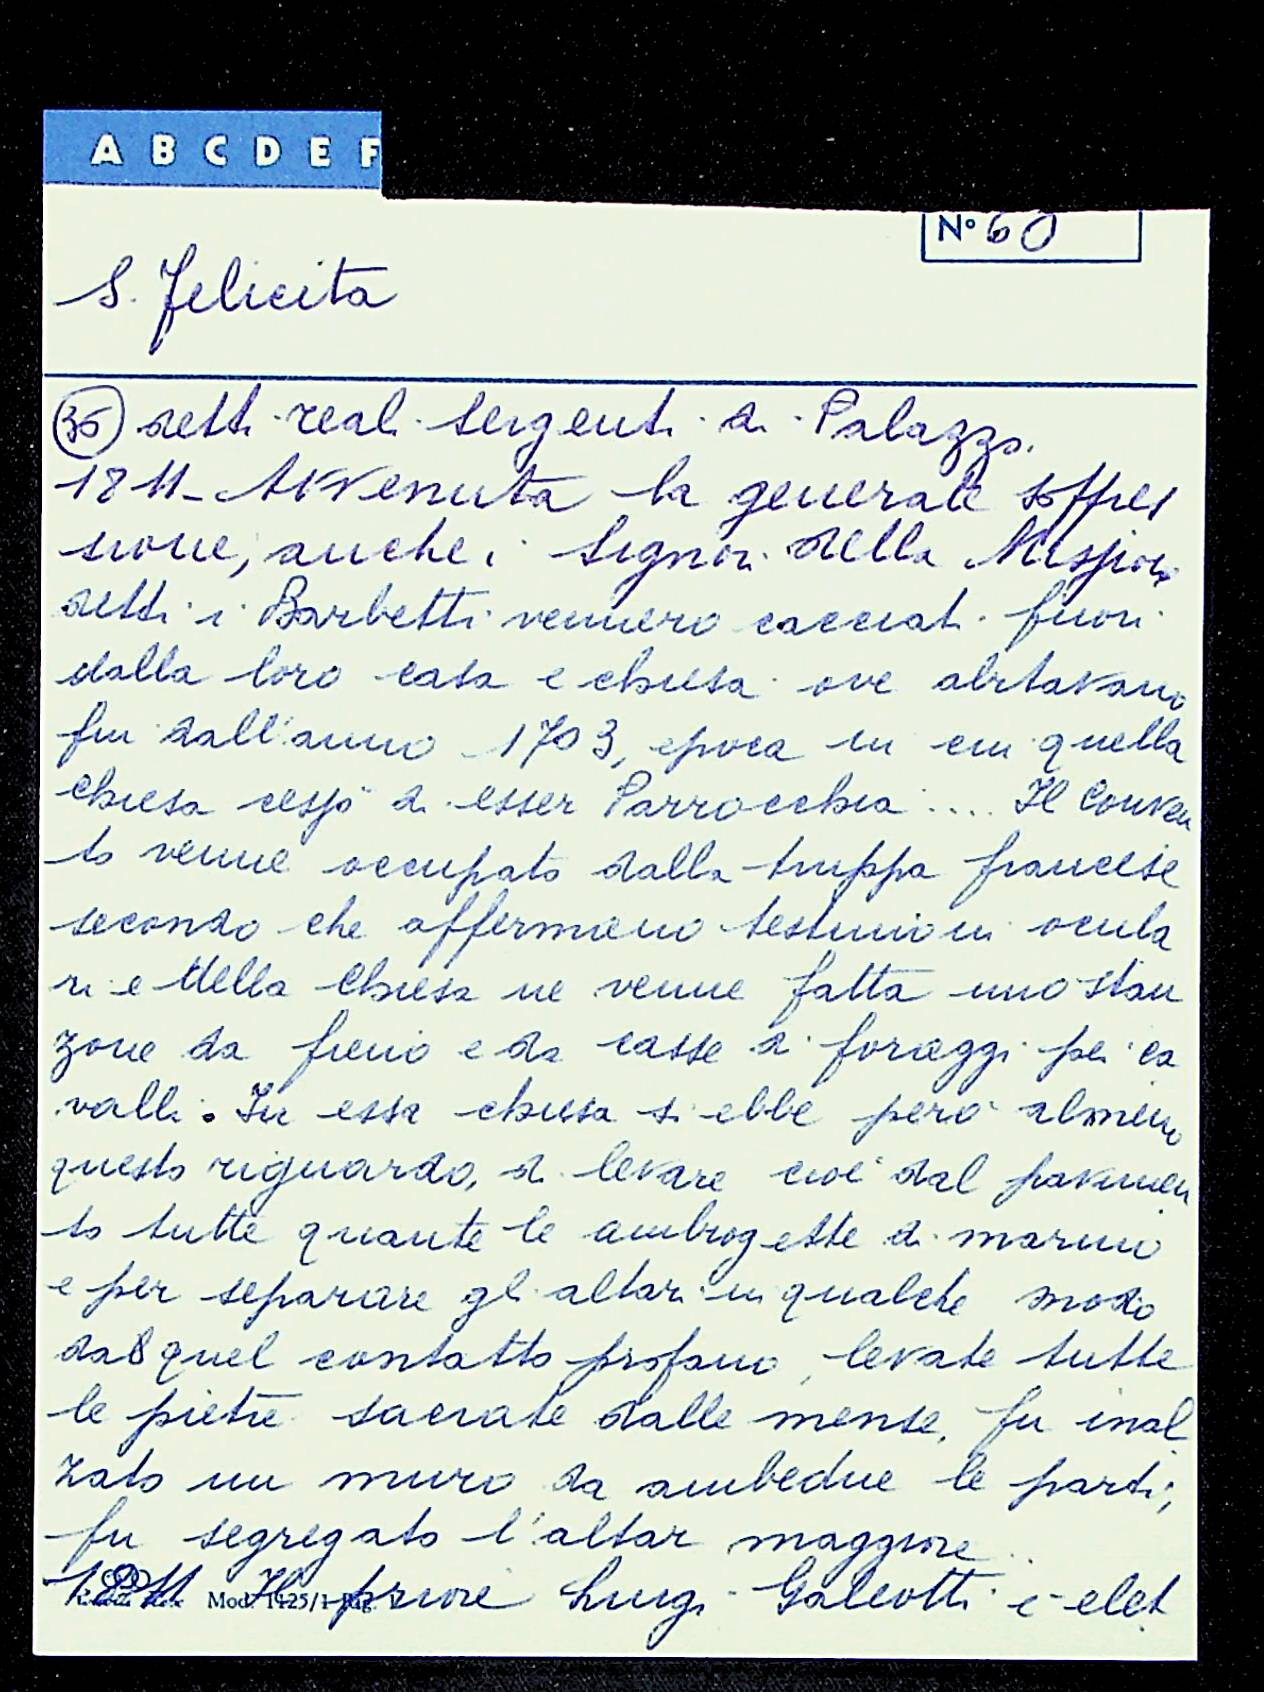 A B C D E F
N° 60
S. Felicita
(36) detti reali sergenti di Palazzo.
1811 - Avvenuta la generale soppres
sione, anche i Signori della Missione
detti i Barbetti vennero cacciati fuori
dalla loro casa e chiesa ove abitavano
fin dall'anno 1703, epoca in cui quella
chiesa cessò di esser Parrocchia .... Il Conven
to venne occupato dalla truppa francese
secondo che affermano testimoni ocula
ri e della Chiesa ne venne fatta uno stan
zone da fieno e da casse di foraggi pei ca
valli. In essa chiesa si ebbe però almeno
questo riguardo, di levare cioè dal pavimen
to tutte quante le ambrogette di marmo
e per separare gli altari in qualche modo
da quel contatto profano, levate tutte
le pietre sacrate dalle mense, fu inal
zato un muro da ambedue le parti;
fu segregato l'altar maggiore..
1811 Il priore Luigi Galeotti è elet
Mod. 1125/1